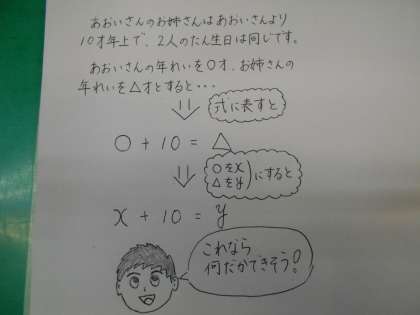 あおいさんのお姉さんはあおいさんより
10才年上で、2人のたん生日は同じです。
あおいさんの年れいを○才、お姉さんの
年れいを△才とすると・・・
式に表すと
○ + 10 = △
○をx
△をy
にすると
x + 10 = y
これなら
何だかできそう!